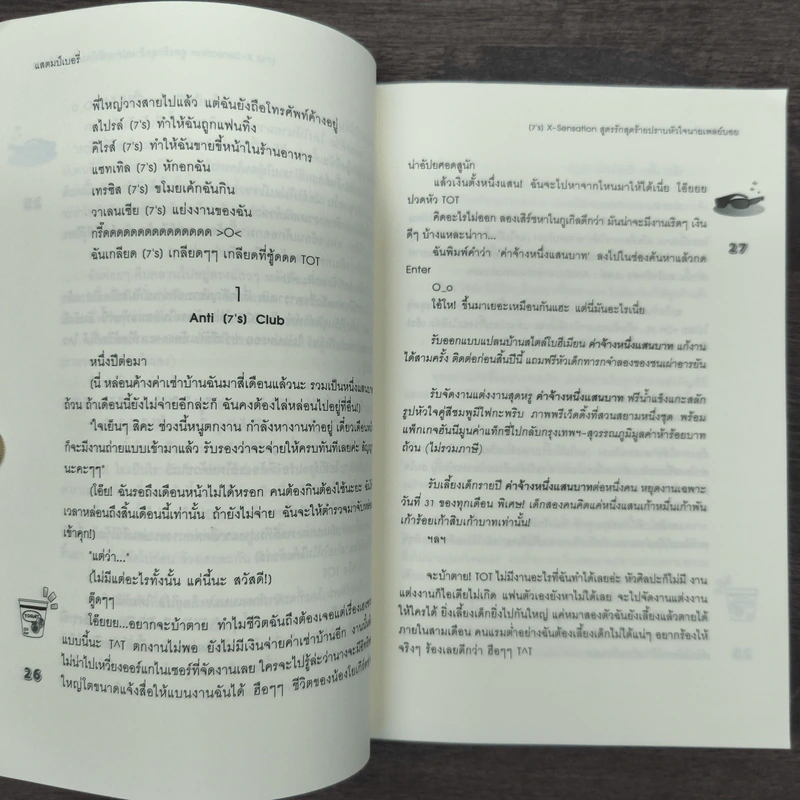 แสตมป์เบอรี่
พี่ใหญ่วางสายไปแล้ว แต่ฉันยังถือโทรศัพท์ค้างอยู่
สไปรส์ (7's) ทำให้ฉันถูกแฟนทิ้ง
คิไรส์ (7's) ทำให้ฉันขายขี้หน้าในร้านอาหาร
แซทเทิล (7's) หักอกฉัน
เทรซิส (7's) ขโมยเค้กฉันกิน
วาเลนเซีย (7's) แย่งงานของฉัน
กรี๊ดดดดดดดดดดดดดดด >O<
ฉันเกลียด (7's) เกลียดๆๆ เกลียดที่ซู้ดดด TOT
1
Anti (7's) Club
หนึ่งปีต่อมา
(นี่ หล่อนค้างค่าเช่าบ้านฉันมาสี่เดือนแล้วนะ รวมเป็นหนึ่งแสน
ถ้วน ถ้าเดือนนี้ยังไม่จ่ายอีกล่ะก็ ฉันคงต้องไล่หล่อนไปอยู่ที่อื่น!)
"ใจเย็นๆ สิคะ ช่วงนี้หนูตกงาน กำลังหางานทำอยู่ เดี๋ยวเดือน
ก็จะมีงานถ่ายแบบเข้ามาแล้ว รับรองว่าจะจ่ายให้ครบทันทีเลยค่ะ
นะคะๆๆ"
(โอ๊ย! ฉันรอถึงเดือนหน้าไม่ได้หรอก คนต้องกินต้องใช้นะยะ
เวลาหล่อนถึงสิ้นเดือนนี้เท่านั้น ถ้ายังไม่จ่าย ฉันจะให้ตำรวจมาจับ
เข้าคุก!)
"แต่ว่า..."
(ไม่มีแต่อะไรทั้งนั้น แค่นี้นะ สวัสดี!)
ตู๊ดๆๆ
โอ๊ยยย...อยากจะบ้าตาย ทำไมชีวิตฉันถึงต้องเจอแต่เรื่อง
แบบนี้นะ T^T ตกงานไม่พอ ยังไม่มีเงินจ่ายค่าเช่าบ้านอีก
ไม่น่าไปเหยียงออร์แกไนเซอร์ที่จัดงานเลย ใครจะไปรู้ล่ะว่านางจะมี
ใหญ่โตขนาดแจ้งสื่อให้แบนงานฉันได้ ฮือๆๆ ชีวิตของน้องโยเกิร์ต
26
(7's) X-Sensation สูตรรักสุดร้ายปราบหัวใจนายเพลย์บอย
น่าอัปยศอดสูนัก
แล้วเงินตั้งหนึ่งแสน! ฉันจะไปหาจากไหนมาให้ได้เนี่ย โอ๊ยยย
ปวดหัว TOT
คิดอะไรไม่ออก ลองเสิร์ชหาในกูเกิลดีกว่า มันน่าจะมีงานเริดๆ เงิน
ดีๆ บ้างแหละน่าาา...
ฉันพิมพ์คำว่า 'ค่าจ้างหนึ่งแสนบาท' ลงไปในช่องค้นหาแล้วกด
Enter
O_o
โอ้โห! ขึ้นมาเยอะเหมือนกันแฮะ แต่นี่มันอะไรเนี่ย
รับออกแบบแปลนบ้านสไตล์โบฮีเมียน ค่าจ้างหนึ่งแสนบาท แก้งาน
ได้สามครั้ง ติดต่อก่อนสิ้นปีนี้ แถมฟรีหัวเด็กทารกจำลองของชนเผ่าอารยัน
รับจัดงานแต่งงานสุดหรู ค่าจ้างหนึ่งแสนบาท ฟรีน้ำแข็งแกะสลัก
รูปหัวใจคู่สีชมพูมีไฟกะพริบ ภาพพรีเว็ดดิ้งที่สวนสยามหนึ่งชุด พร้อม
แพ็กเกจฮันนีมูนค่าแท็กซี่ไปกลับกรุงเทพฯ-สุวรรณภูมิมูลค่าห้าร้อยบาท
ถ้วน (ไม่รวมภาษี)
รับเลี้ยงเด็กรายปี ค่าจ้างหนึ่งแสนบาทต่อหนึ่งคน หยุดงานเฉพาะ
วันที่ 31 ของทุกเดือน พิเศษ! เด็กสองคนคิดแค่หนึ่งแสนเก้าหมื่นเก้าพัน
เก้าร้อยเก้าสิบเก้าบาทเท่านั้น!
ฯลฯ
จะบ้าตาย! TOT ไม่มีงานอะไรที่ฉันทำได้เลยอ่ะ หัวศิลปะก็ไม่มี งาน
แต่งงานก็ไอเดียไม่เกิด แฟนตัวเองยังหาไม่ได้เลย จะไปจัดงานแต่งงาน
ให้ใครได้ ยิ่งเลี้ยงเด็กยิ่งไปกันใหญ่ แค่หมาสองตัวฉันยังเลี้ยงแล้วตายได้
ภายในสามเดือน คนแรมต่ำอย่างฉันต้องเลี้ยงเด็กไม่ได้แน่ๆ อยากร้องไห้
จริงๆ ร้องเลยดีกว่า ฮือๆๆ T^T
27